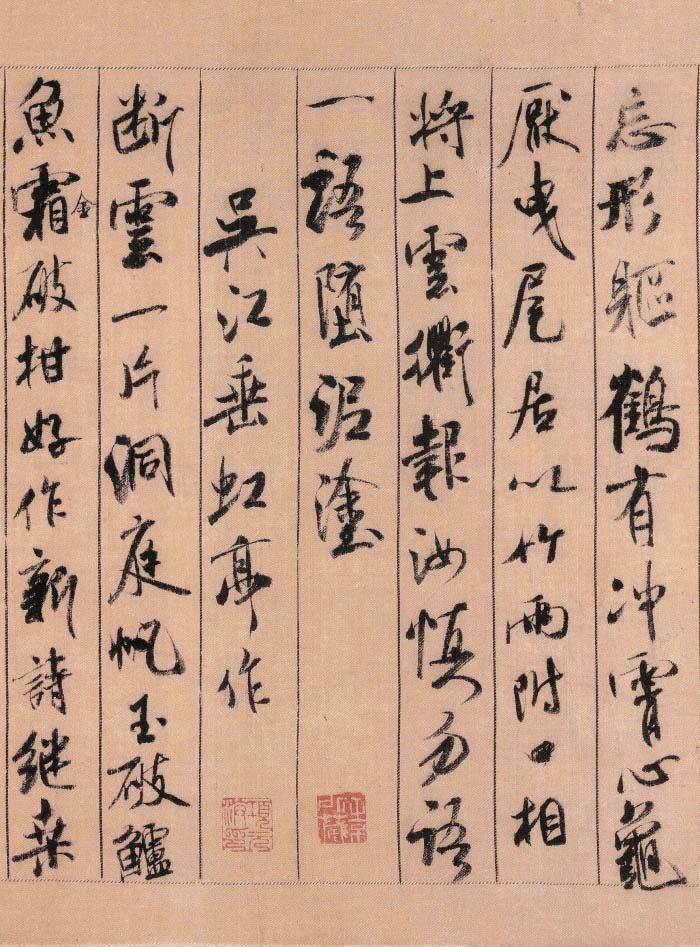 忘形軀鶴有冲霄心龜
厭曳尾居以竹兩附口相
將上雲衢報汝慎勿語
一語堕泥塗
吳江垂虹亭作
断雲一片洞庭帆玉破鱸
魚霜金破柑好作新詩継桒